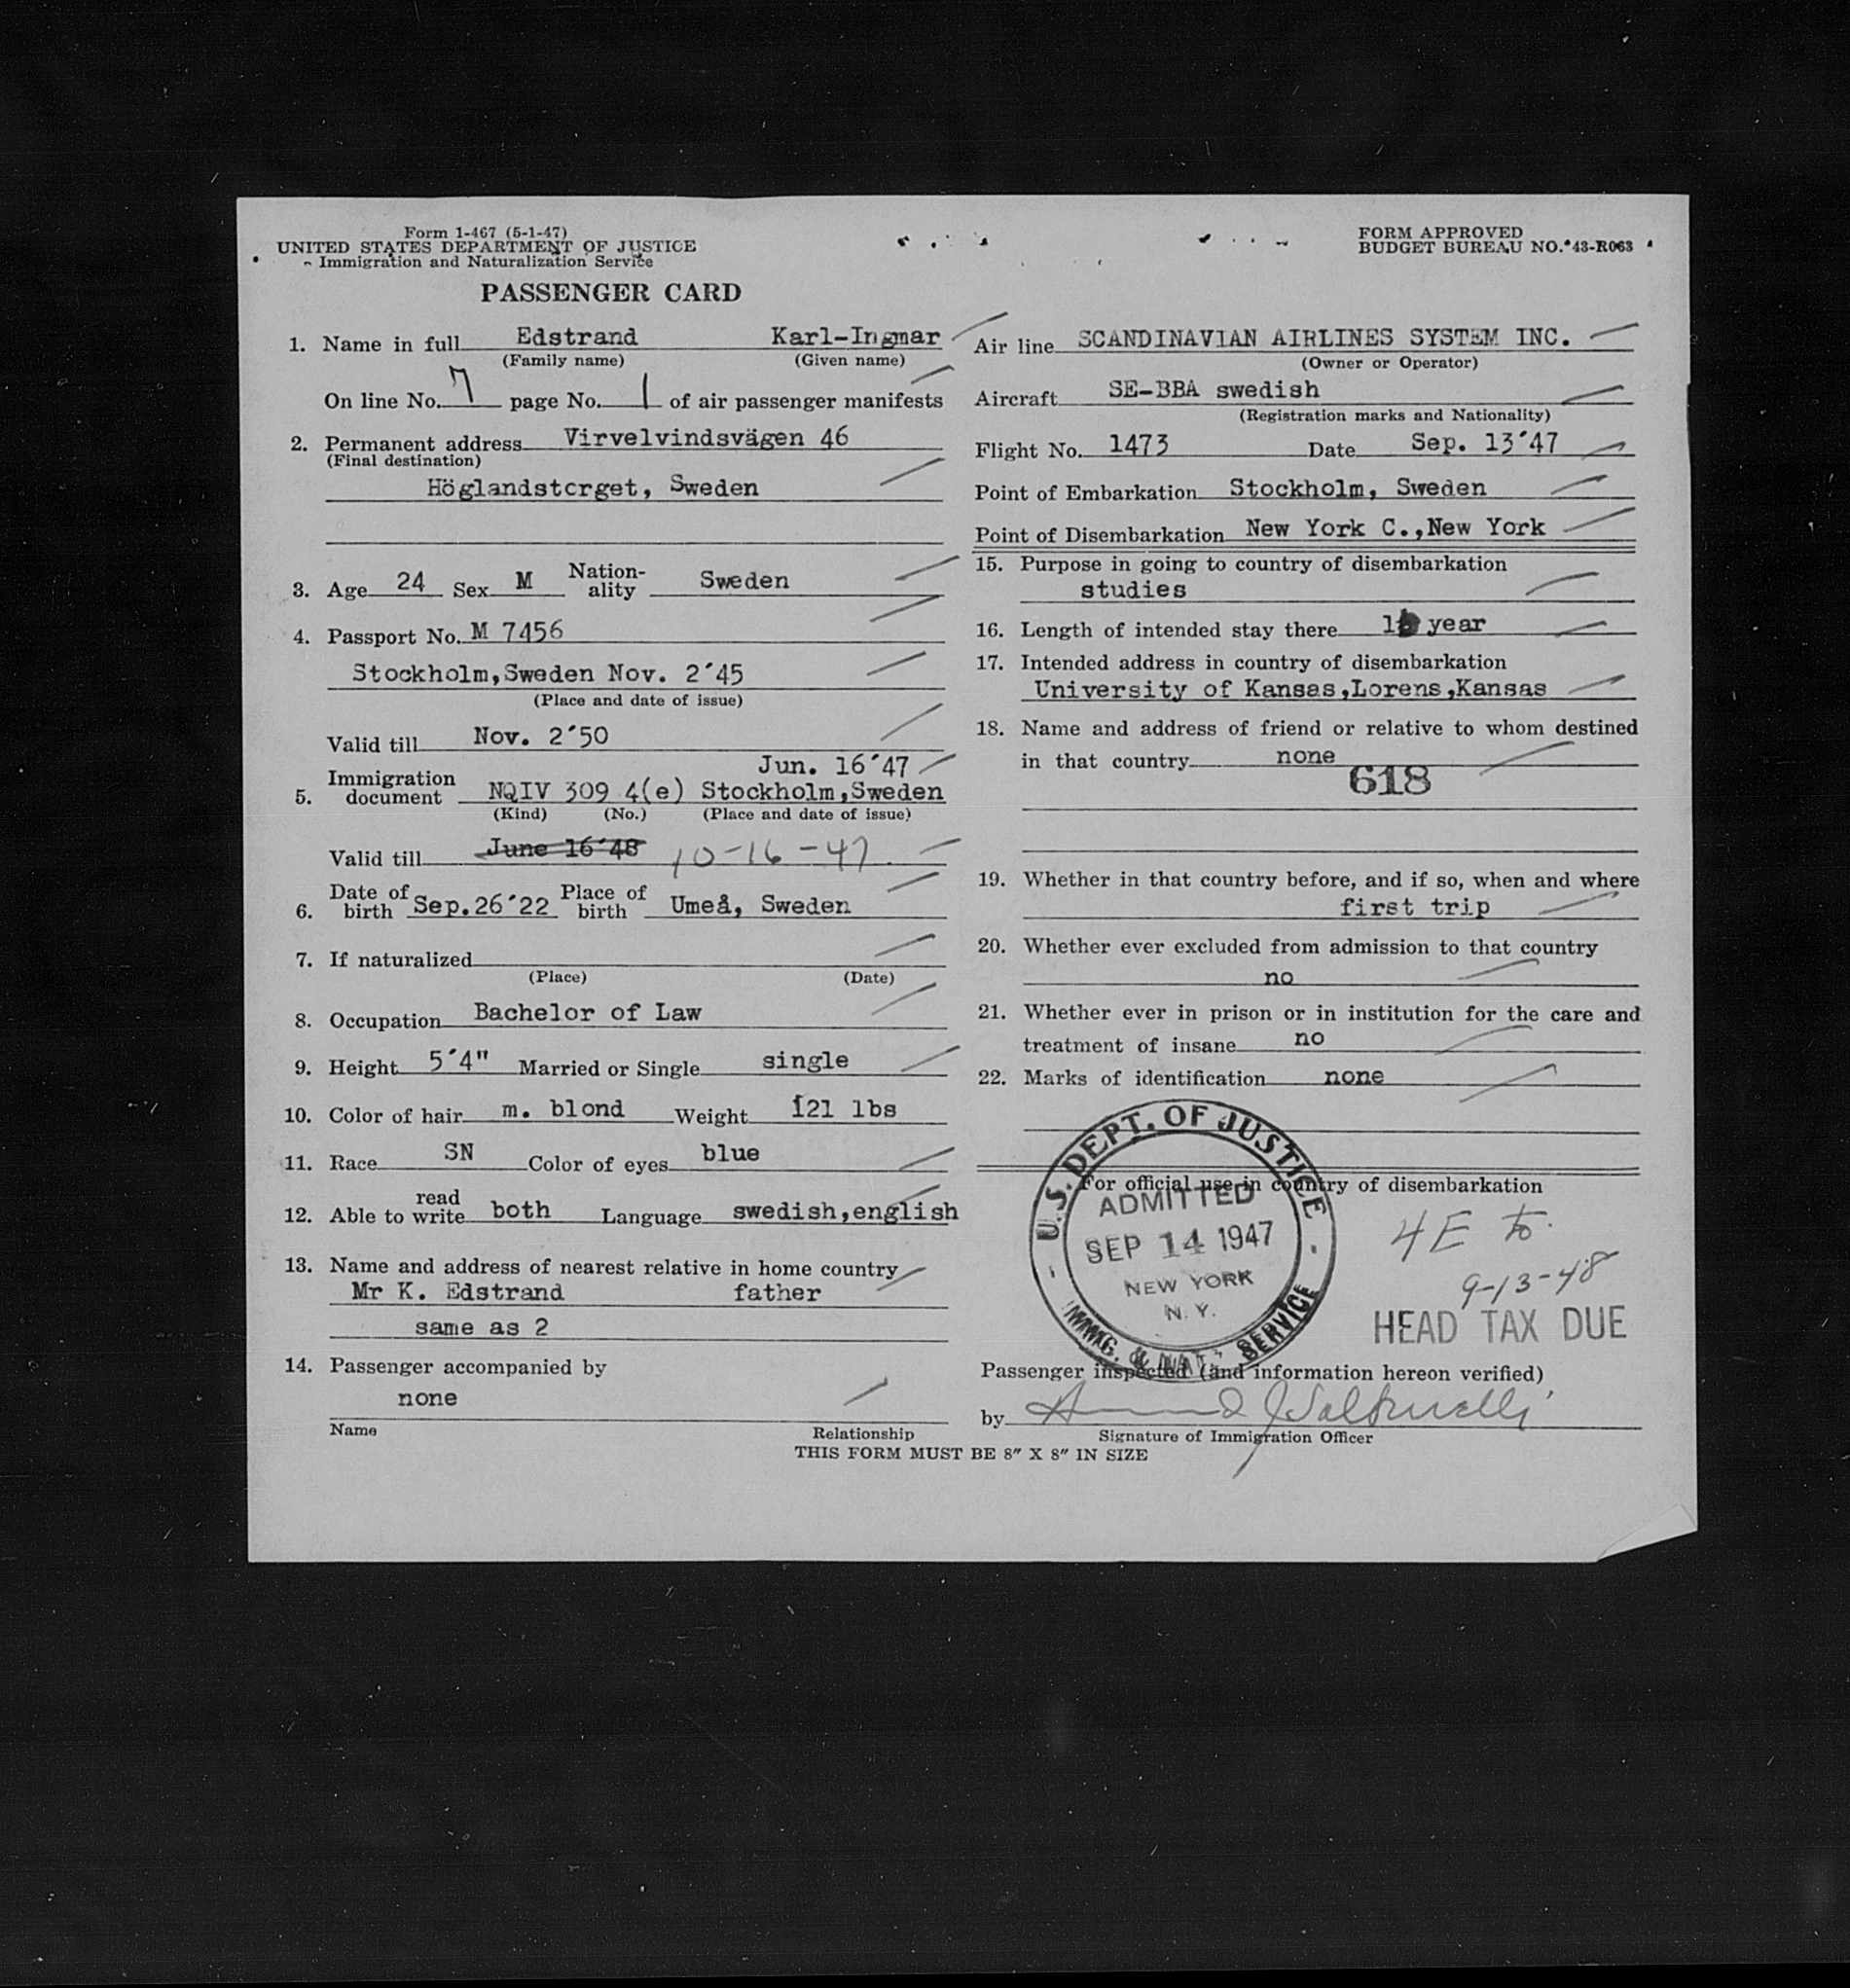 Form 1-467 (5-1-47)
UNITED STATES DEPARTMENT OF JUSTICE
Immigration and Naturalization Service
FORM APPROVED
BUDGET BUREAU NO. 43-R063
PASSENGER CARD
1. Name in full Edstrand Karl-Ingmar
(Family name) (Given name)
On line No. 7 page No. 1 of air passenger manifests
2. Permanent address Virvelvindsvägen 46
(Final destination)
Höglandstcrget, Sweden
3. Age 24 Sex M Nation-ality Sweden
4. Passport No. M 7456
Stockholm,Sweden Nov. 2´45
(Place and date of issue)
Valid till Nov. 2´50
Jun. 16´47
5. Immigration document NQIV 309 4(e) Stockholm,Sweden
(Kind) (No.) (Place and date of issue)
Valid till June 16´48 10-16-47
6. Date of birth Sep.26´22 Place of birth Umeå, Sweden
7. If naturalized
(Place) (Date)
8. Occupation Bachelor of Law
9. Height 5´4" Married or Single single
10. Color of hair m. blond Weight 121 lbs
11. Race SN Color of eyes blue
12. Able to read write both Language swedish,english
13. Name and address of nearest relative in home country
Mr K. Edstrand father
same as 2
14. Passenger accompanied by
none
Name Relationship
Air line SCANDINAVIAN AIRLINES SYSTEM INC.
(Owner or Operator)
Aircraft SE-BBA swedish
(Registration marks and Nationality)
Flight No. 1473 Date Sep. 13´47
Point of Embarkation Stockholm, Sweden
Point of Disembarkation New York C.,New York
15. Purpose in going to country of disembarkation
studies
16. Length of intended stay there 1 year
17. Intended address in country of disembarkation
University of Kansas,Lorens,Kansas
18. Name and address of friend or relative to whom destined
in that country none
618
19. Whether in that country before, and if so, when and where
first trip
20. Whether ever excluded from admission to that country
no
21. Whether ever in prison or in institution for the care and
treatment of insane no
22. Marks of identification none
For official use in country of disembarkation
U.S. DEPT. OF JUSTICE
ADMITTED
SEP 14 1947
NEW YORK
N. Y.
IMMIG. & NAT. SERVICE
4E to
9-13-48
HEAD TAX DUE
Passenger inspected (and information hereon verified)
by
Signature of Immigration Officer
THIS FORM MUST BE 8" X 8" IN SIZE